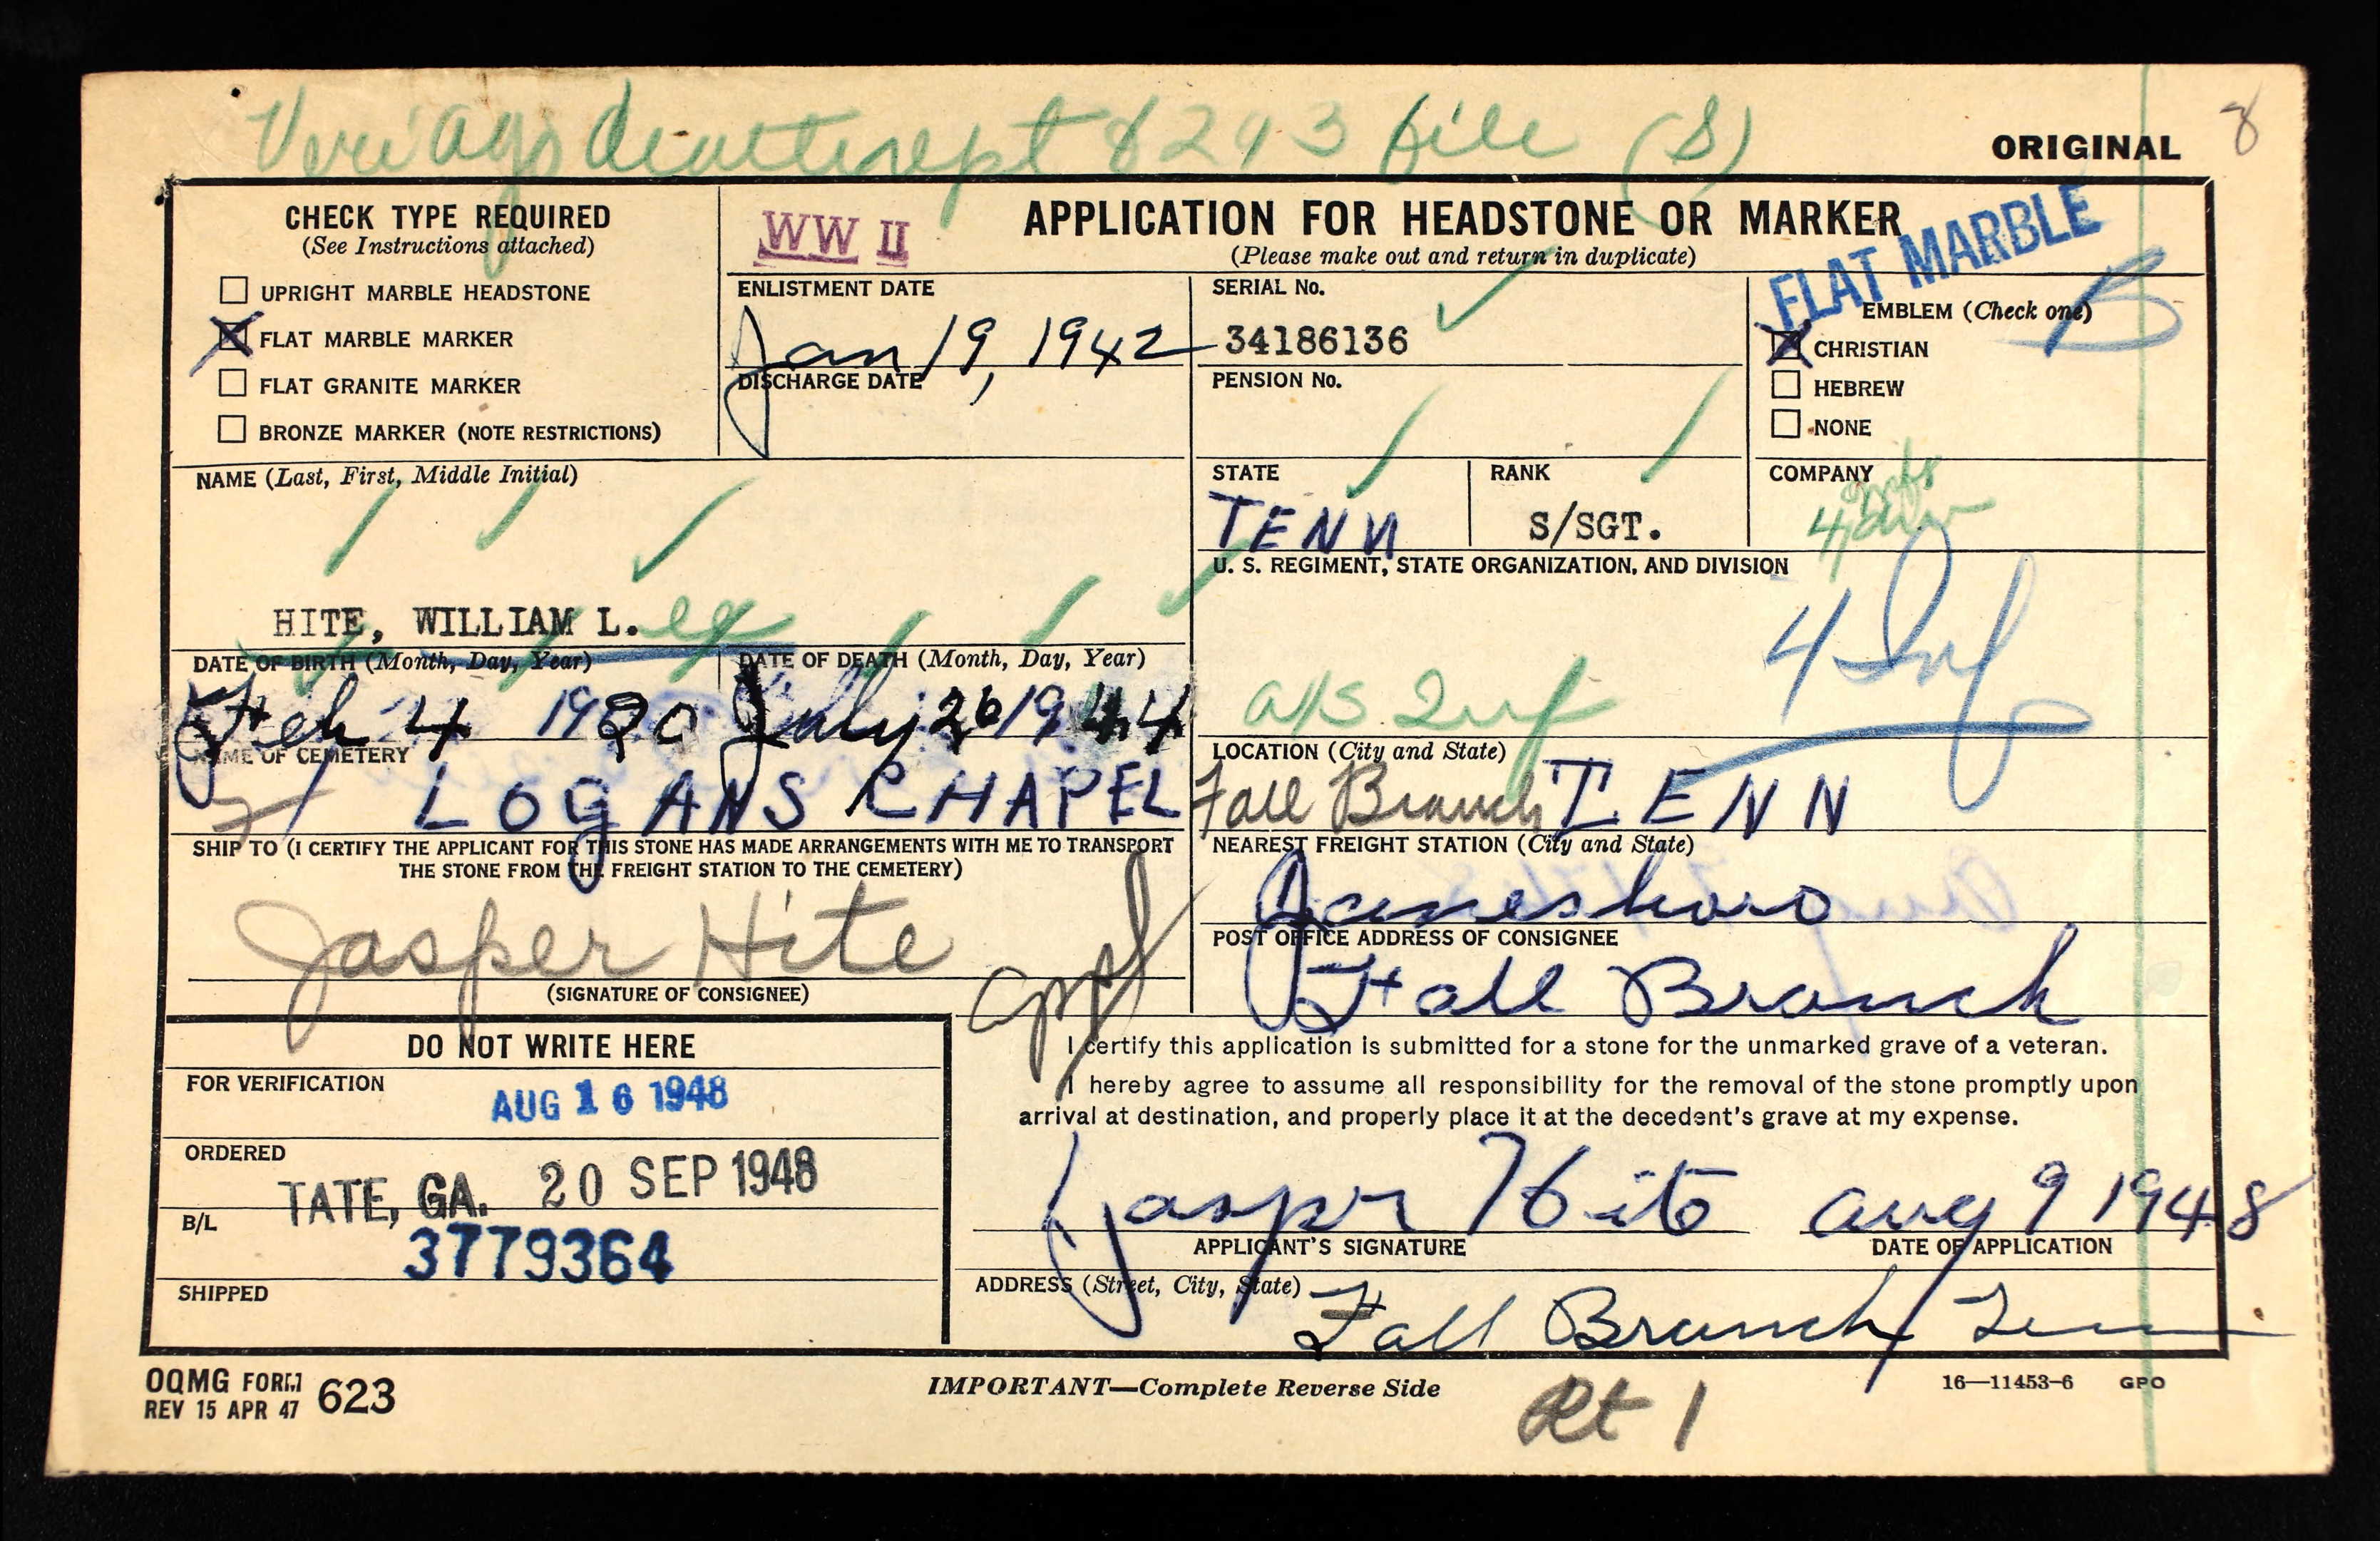 8293 file (S)
ORIGINAL
8
CHECK TYPE REQUIRED
(See Instructions attached)
UPRIGHT MARBLE HEADSTONE
FLAT MARBLE MARKER
FLAT GRANITE MARKER
BRONZE MARKER (NOTE RESTRICTIONS)
WW II
APPLICATION FOR HEADSTONE OR MARKER
(Please make out and return in duplicate)
FLAT MARBLE
ENLISTMENT DATE
Jan 19, 1942
DISCHARGE DATE
SERIAL No.
34186136
PENSION No.
EMBLEM (Check one)
B
CHRISTIAN
HEBREW
NONE
NAME (Last, First, Middle Initial)
HITE, WILLIAM L.
STATE
TENN
RANK
S/SGT.
COMPANY
4 div
U. S. REGIMENT, STATE ORGANIZATION, AND DIVISION
4 Inf
a/s Inf
DATE OF BIRTH (Month, Day, Year)
Feb 4 1920
DATE OF DEATH (Month, Day, Year)
July 26 1944
NAME OF CEMETERY
LOGANS CHAPEL
LOCATION (City and State)
Fall Branch TENN
SHIP TO (I CERTIFY THE APPLICANT FOR THIS STONE HAS MADE ARRANGEMENTS WITH ME TO TRANSPORT
THE STONE FROM THE FREIGHT STATION TO THE CEMETERY)
Jasper Hite
(SIGNATURE OF CONSIGNEE)
appl
NEAREST FREIGHT STATION (City and State)
Jonesboro
POST OFFICE ADDRESS OF CONSIGNEE
Fall Branch
DO NOT WRITE HERE
FOR VERIFICATION
AUG 16 1948
ORDERED
TATE, GA. 20 SEP 1948
B/L
3779364
SHIPPED
I certify this application is submitted for a stone for the unmarked grave of a veteran.
I hereby agree to assume all responsibility for the removal of the stone promptly upon
arrival at destination, and properly place it at the decedent's grave at my expense.
Jasper Hite aug 9 1948
APPLICANT'S SIGNATURE
DATE OF APPLICATION
ADDRESS (Street, City, State)
Fall Branch, Tenn
OQMG FORM 623
REV 15 APR 47
IMPORTANT—Complete Reverse Side
Rt 1
16—11453-6 GPO